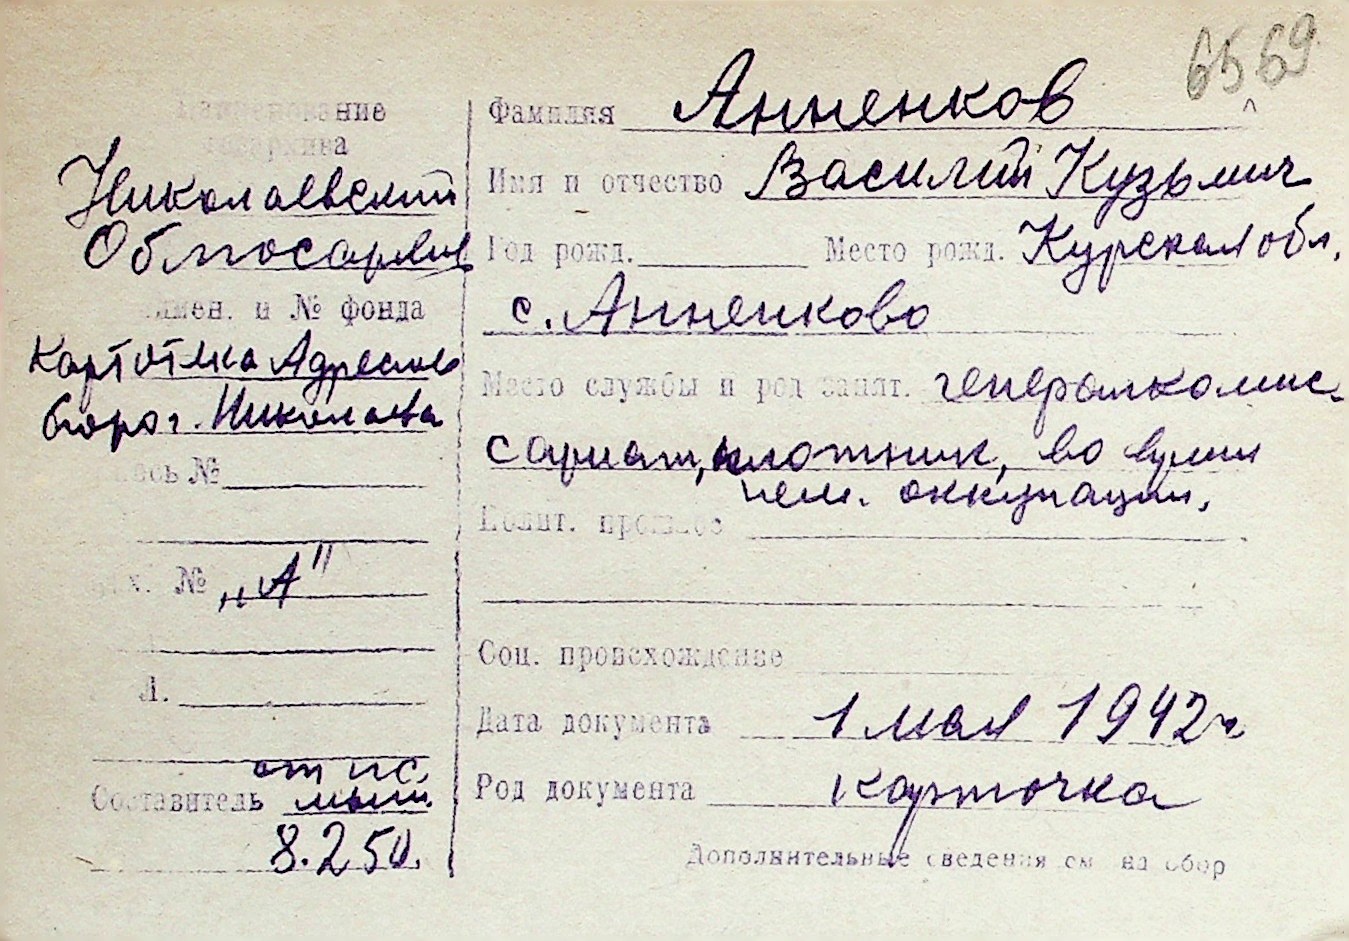 6569
Наименование
госархива
Николаевский
Облгосархив
Наимен. и № фонда
Картотека Адресного
бюро г. Николаева
Опись №
Арх. № „А"
Л.
Составитель
8.2.50.
Фамилия Анненков
Имя и отчество Василий Кузьмич
Год рожд. Место рожд. Курская обл.
с. Анненково
Место службы и род занят. генералкомис-
сариат, плотник, во время
нем. оккупации,
Полит. прошлое
Соц. происхождение
Дата документа 1 мая 1942 г.
Род документа карточка
Дополнительные сведения см на обор